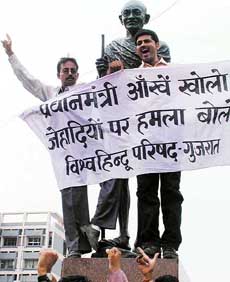 प्रधानमंत्री आँखें खोलो
जेहादियों पर हमला बोलो
विश्व हिन्दू परिषद-गुजरात